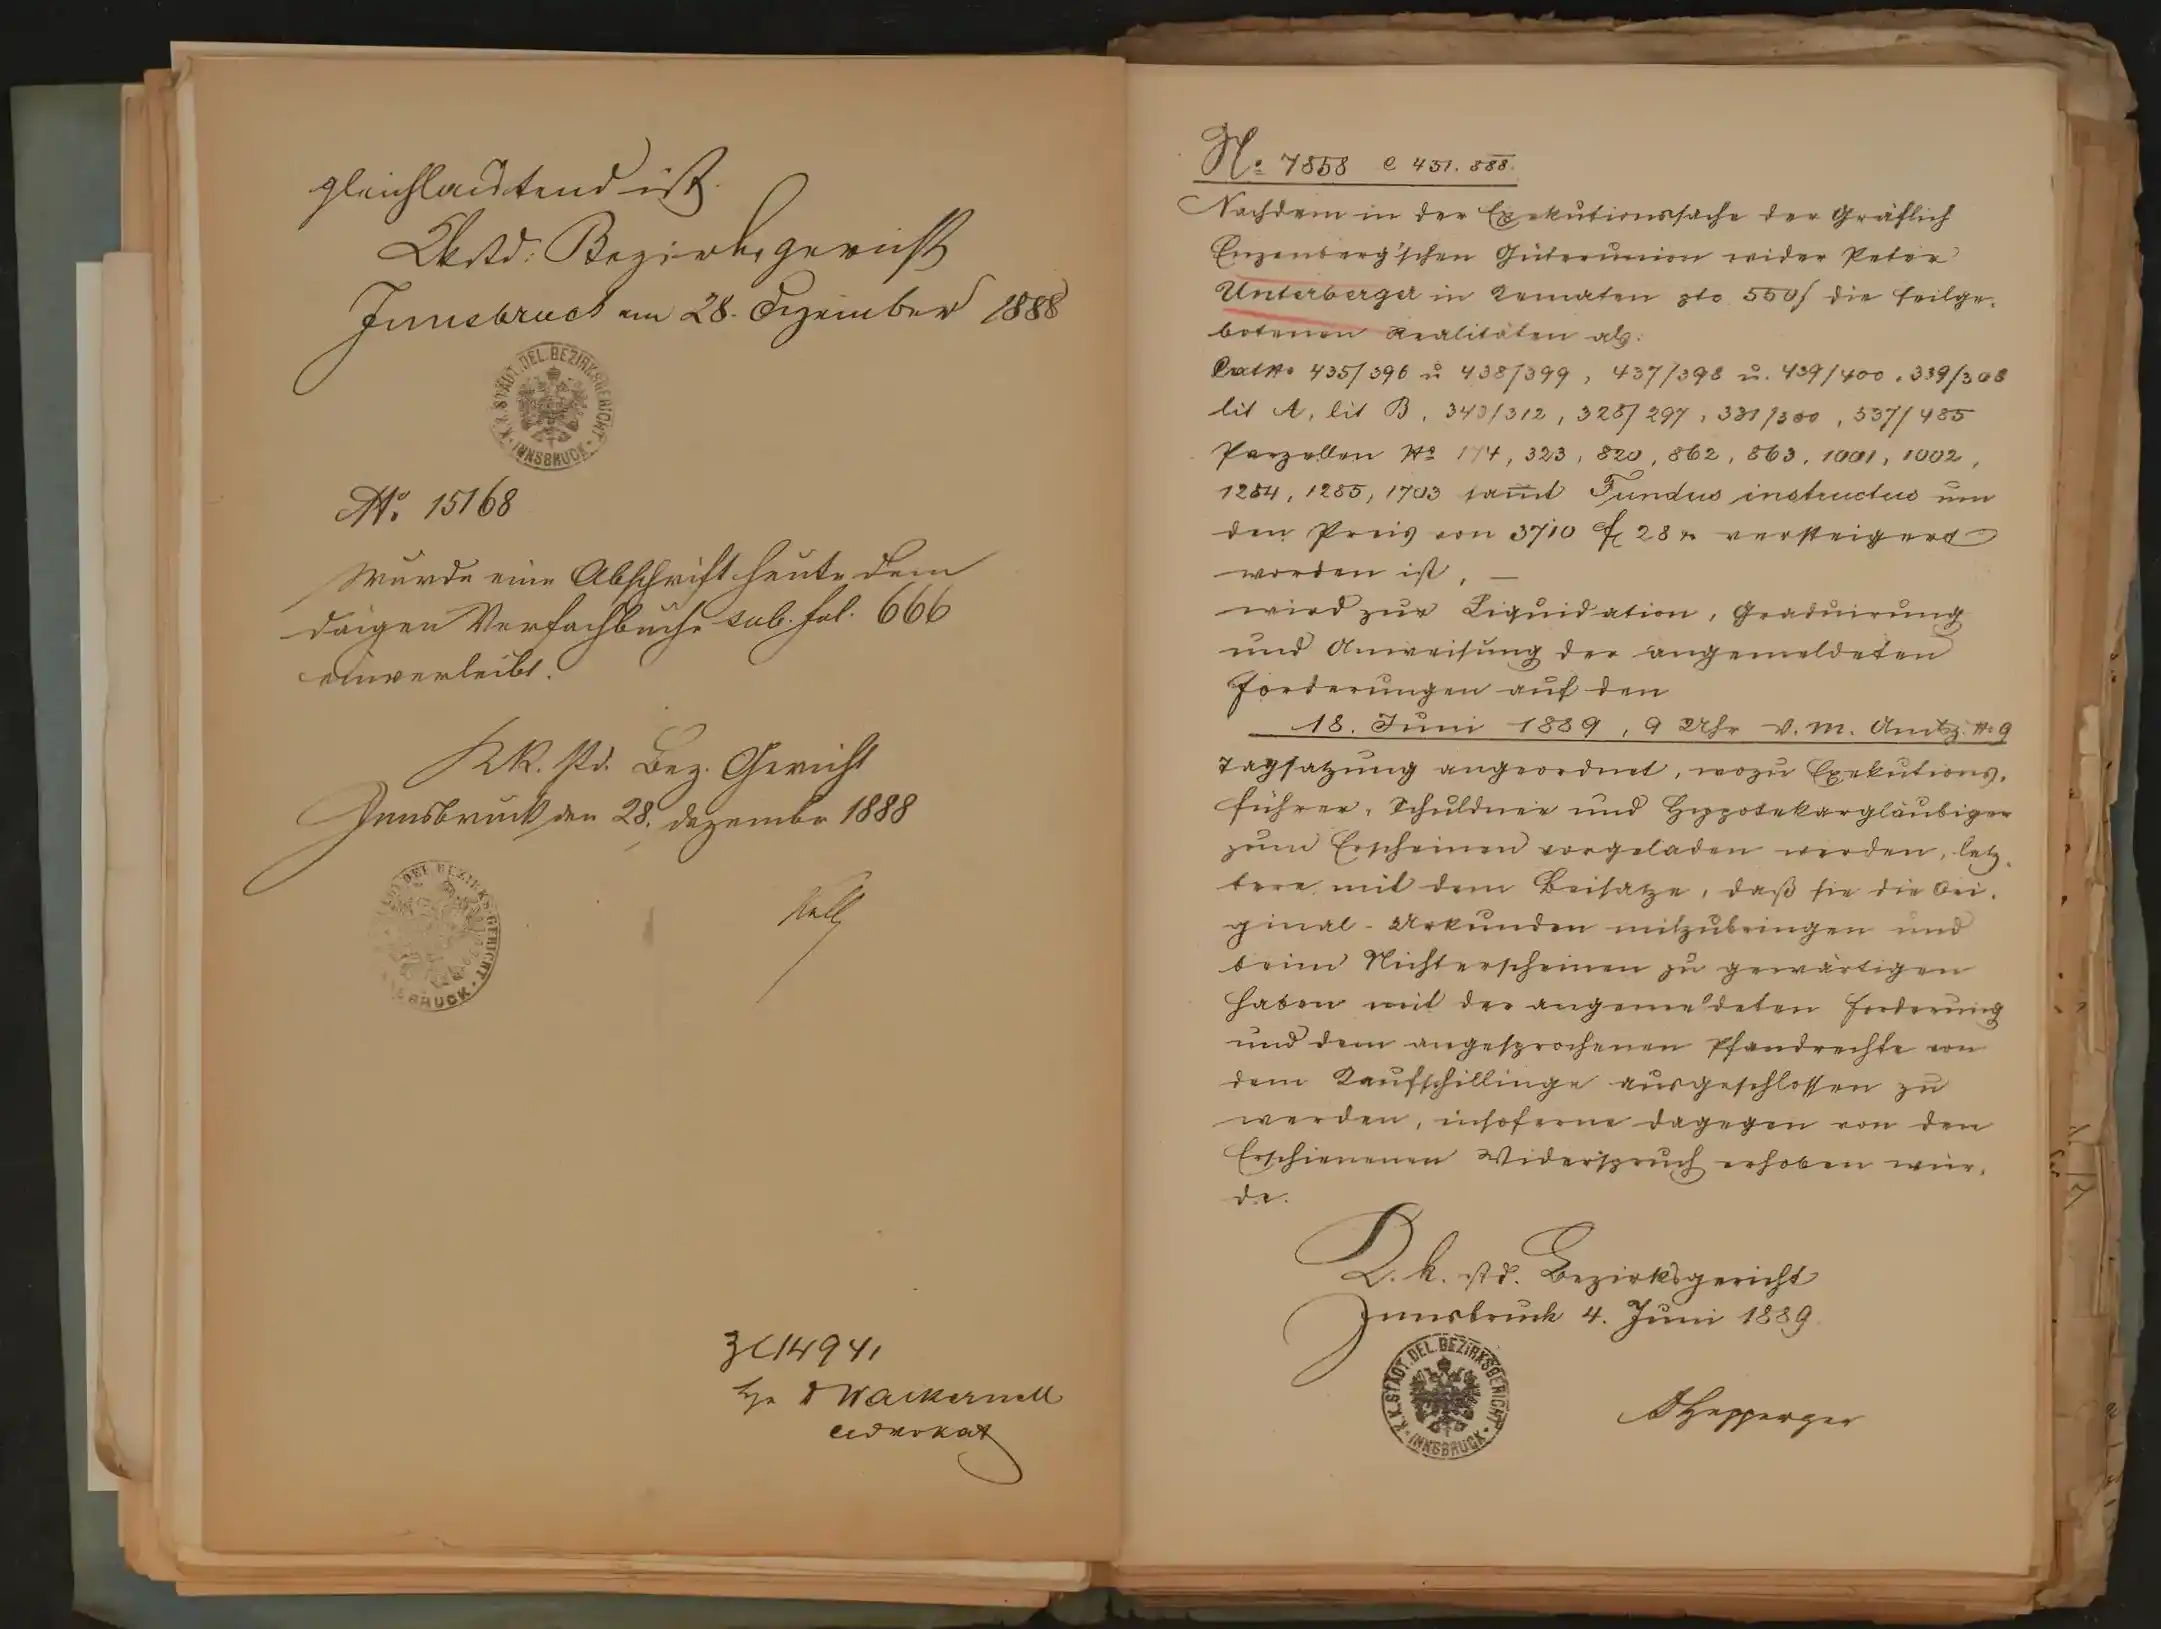 gleichlautend ist.
K. k. std. Bezirksgericht
Innsbruck am 28. Dezember 1888
K.K. STÄDT. DEL. BEZIRKSGERICHT · INNSBRUCK ·
No. 15168
Wurde eine Abschrift heute dem
daigen Verfachbuche sub. fol. 666
einverleibt.
KK. std. Bez. Gericht
Innsbruck den 28. Dezember 1888
DEL BEZIRKS-GERICHT
3/14941
Wackernell
Advokat
No. 7858 C 431. 888.
Nachdem in der Exekutionssache der Gräflich
Enzenberg'schen Güterunion wider Peter
Unterberger in Kematen pto 550f die feilge-
botenen Realitäten als:
Cat No 435/396 u 438/399, 437/398 u. 439/400, 339/308
lit A, lit B, 343/312, 328/297, 331/300, 537/485
Parzellen No 174, 323, 820, 862, 863, 1001, 1002,
1284, 1285, 1703 samt Fundus instructus um
den Preis von 3710 f 28 x versteigert
worden ist, —
wird zur Liquidation, Graduirung
und Anweisung der angemeldeten
Forderungen auf den
18. Juni 1889, 9 Uhr V. M. Amtsz. No 9
Tagsatzung angeordnet, wozu Exekutions-
führer, Schuldner und Hypotekargläubiger
zum Erscheinen vorgeladen werden, letz-
tere mit dem Beisatze, daß sie die Ori-
ginal-Urkunden mitzubringen und
beim Nichterscheinen zu gewärtigen
haben mit der angemeldeten Forderung
und dem angesprochenen Pfandrechte von
dem Kaufschillinge ausgeschlossen zu
werden, insoferne dagegen von den
Erschienenen Widerspruch erhoben wür-
de.
K. k. std. Bezirksgericht
Innsbruck 4. Juni 1889.
K.K. STÄDT. DEL. BEZIRKSGERICHT · INNSBRUCK ·
Hepperger